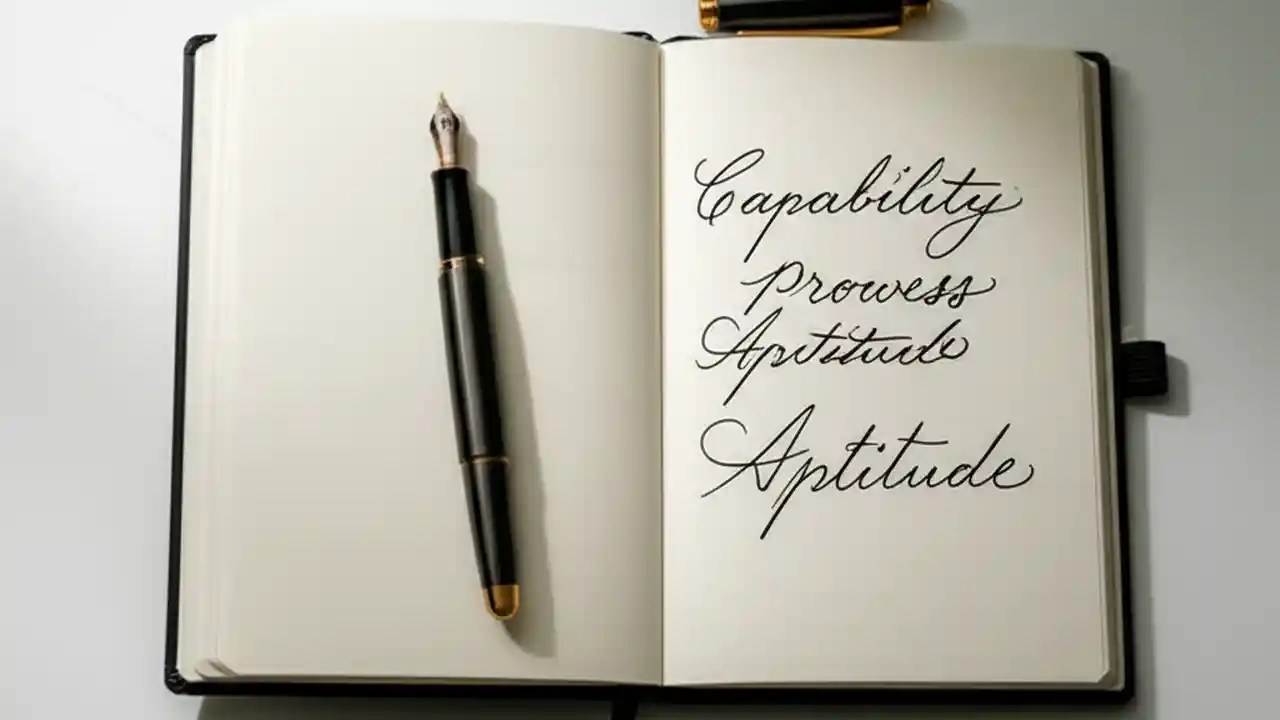 Capability
prowess
Aptitude
Aptitude